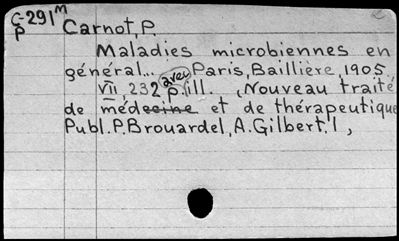 C-291m
p
Carnot, P.
Maladies microbiennes en
général... Paris, Baillière, 1905.
avec
VII, 232 p. ill. (Nouveau traité
de médecine et de thérapeutique
Publ. P. Brouardel, A. Gilbert. 1,